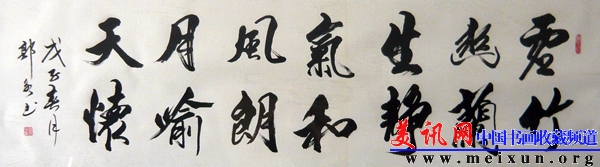 虚竹
幽蘭
生静
氣和
風朗
月喻
天懷
戊子春月
美讯网 中国书画收藏频道
www.meixun.org